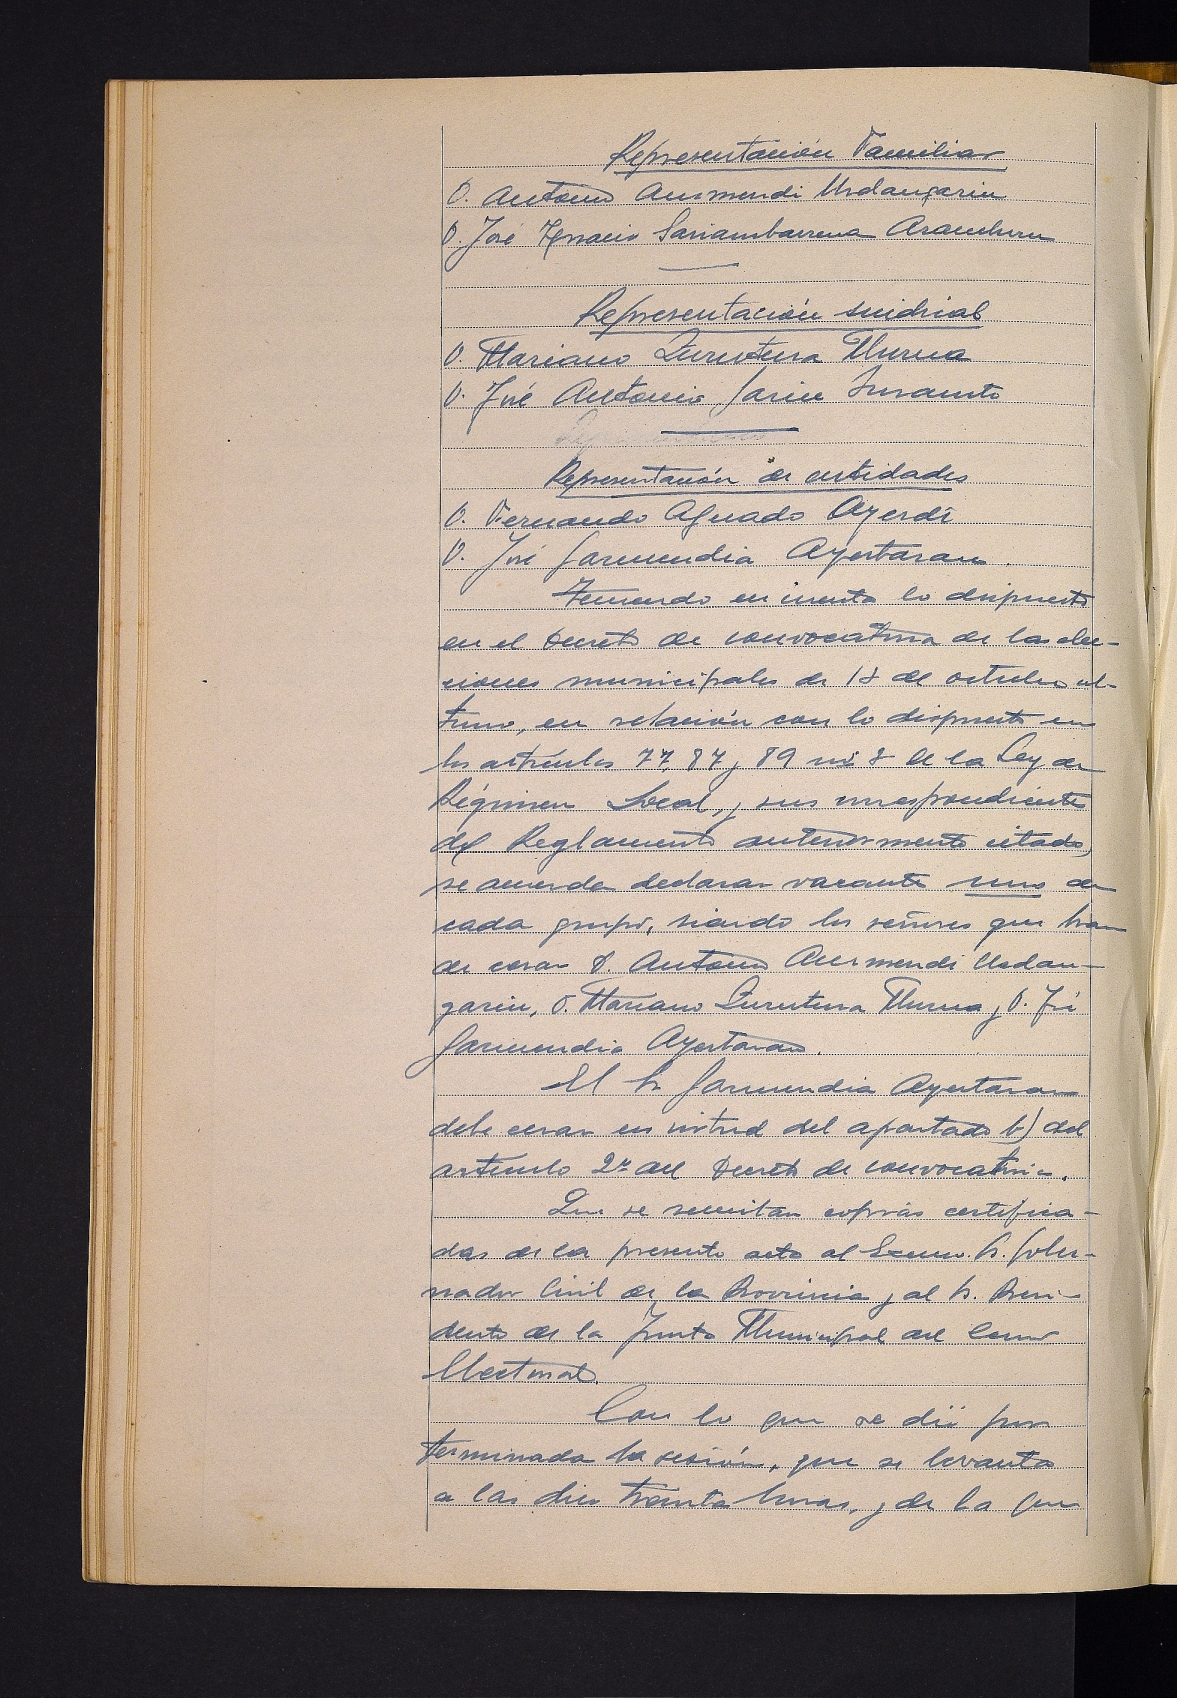 Representación Familiar
D. Antonio Aurmendi Urdangarin
D. José Ignacio Sariambarrena Aramburu
Representación sindical
D. Mariano Zurutuza Murua
D. José Antonio Garin
Representación de entidades
D. Fernando Aguado Ayerdi
D. José Garmendia Ayestaran.
Teniendo en cuenta lo dispuesto
en el Decreto de convocatoria de las elec-
ciones municipales de 18 de octubre úl-
timo, en relación con lo dispuesto en
los artículos 77 87 y 89 nº 2 de la Ley de
Régimen Local, y sus correspondientes
del Reglamento anteriormente citado,
se acuerda declarar vacante uno de
cada grupo, siendo los señores que han
de cesar D. Antonio Aurmendi Urdan-
garin, D. Mariano Zurutuza Murua y D. José
Garmendia Ayestaran.
El Sr Garmendia Ayestaran
debe cesar en virtud del apartado b) del
artículo 2º del Decreto de convocatoria.
Que se remitan copias certifica-
das de la presente acta al Excmo. Sr. Gober-
nador Civil de la Provincia y al Sr. Presi-
dente de la Junta Municipal del Censo
Electoral.
Con lo que se dió por
terminada la sesión, que se levanta
a las diez treinta horas, y de la que